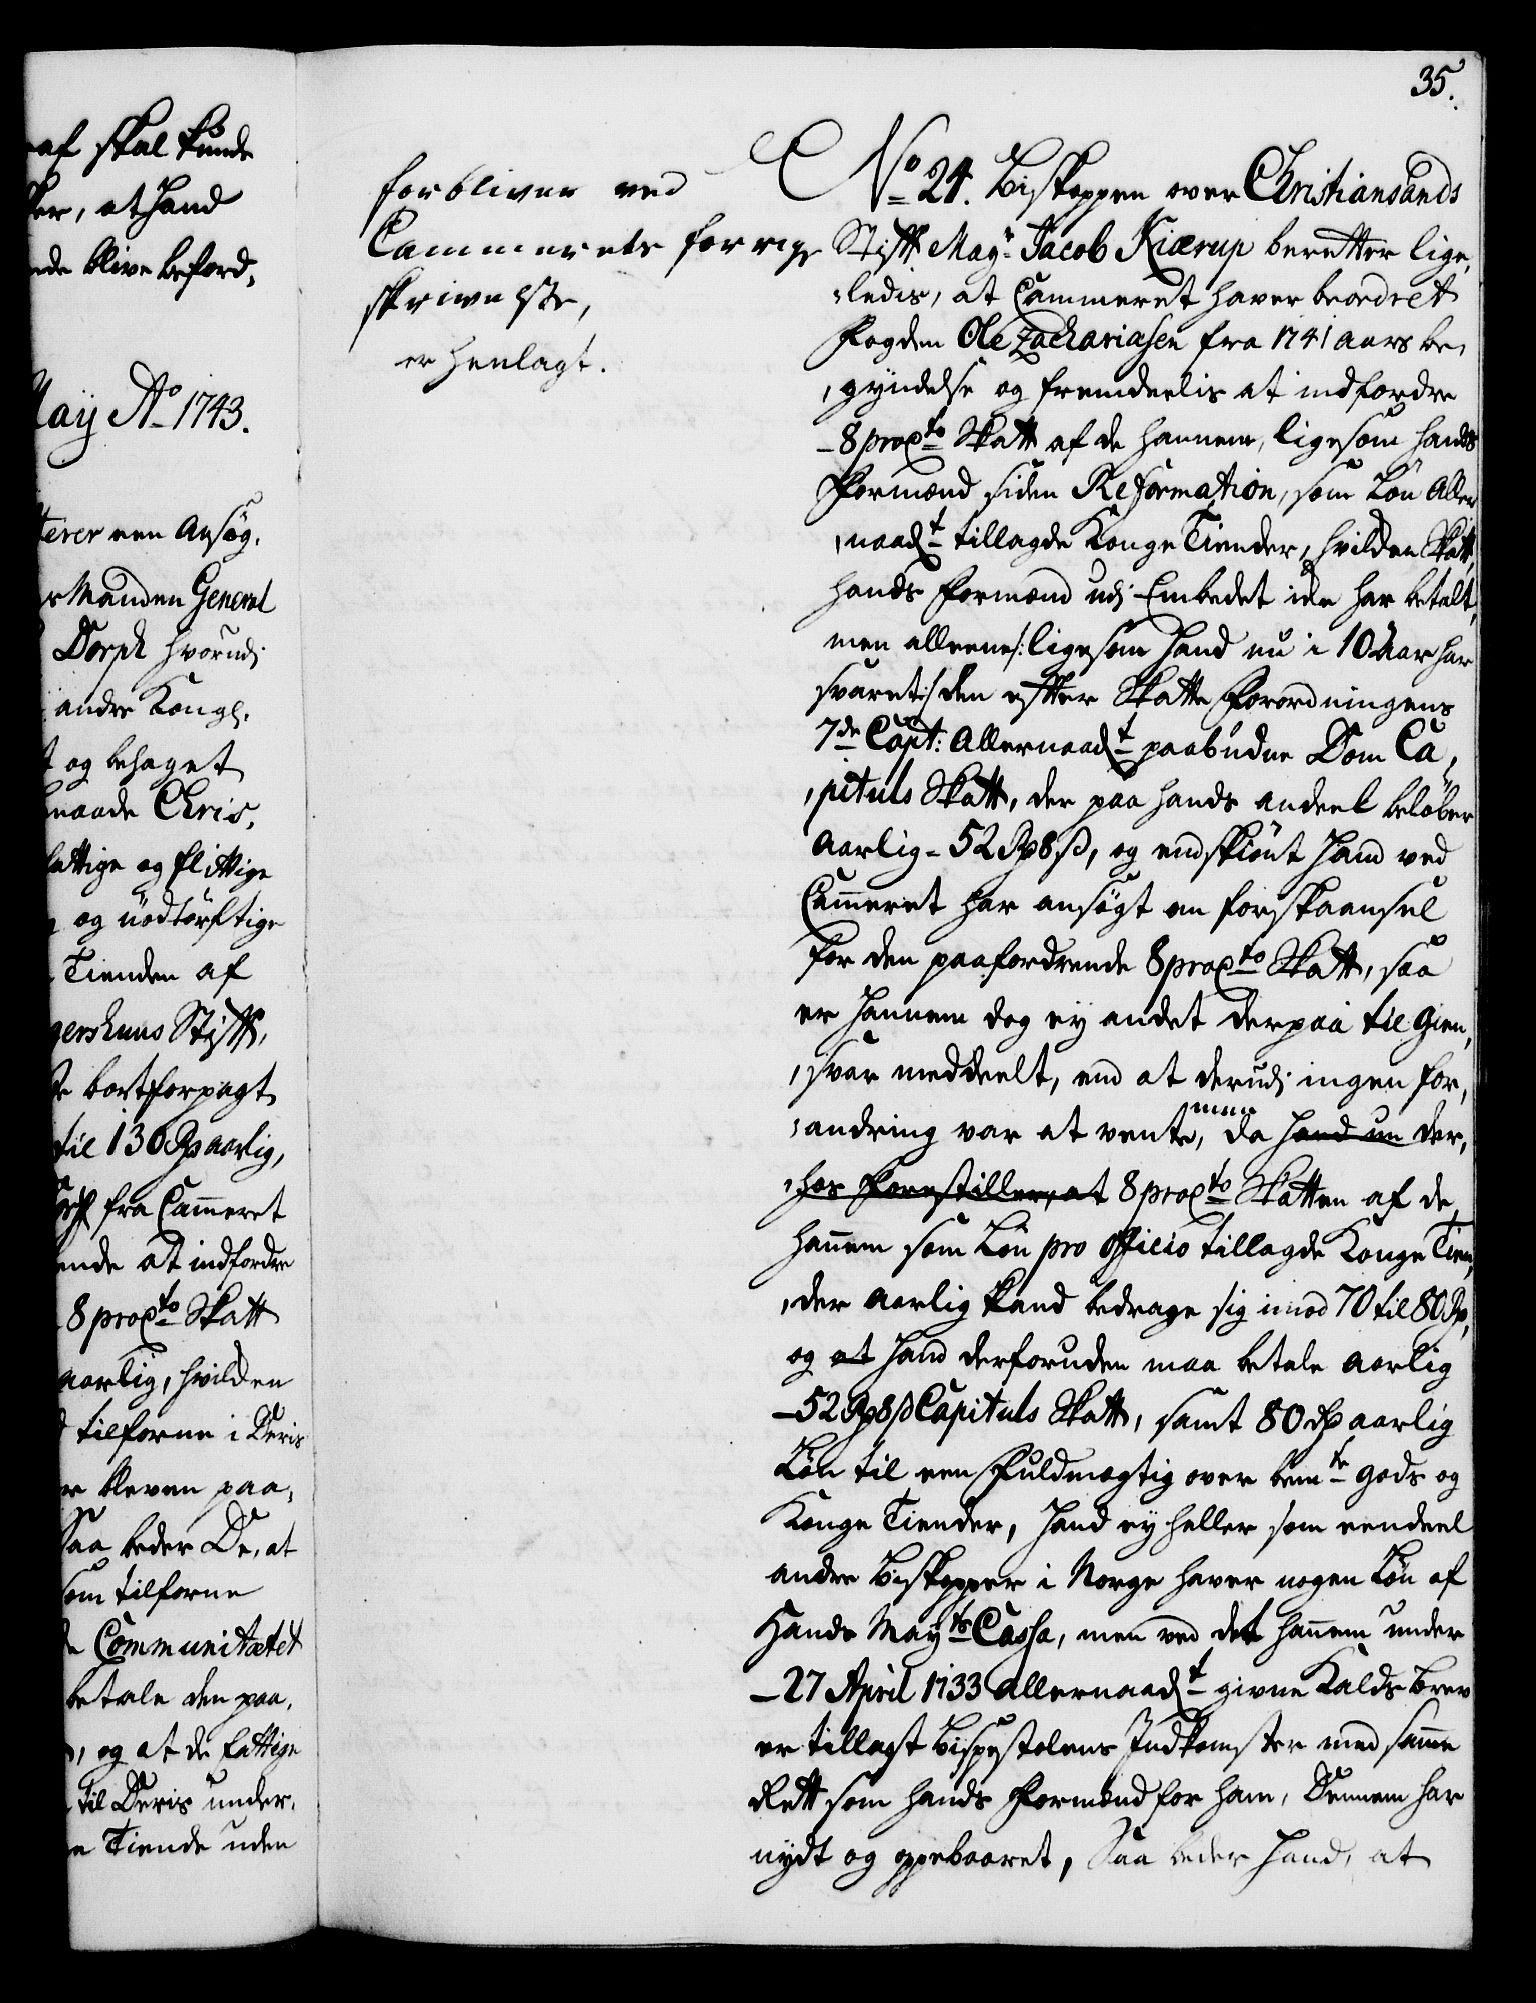 af skal kunde
ker, at Hand
nde blive beford,
Maÿ Ao 1743.
terer een Ansøg,
r Manden General
Dorph hvorudj
andre Kongl.
t og behaget
naade Chris,
fattige og flittige
og nødtørftige
Tienden af
gershuus Stifft,
te bortforpagt
til 136 Rd aarlig,
fra Cammeret
ende at indfordre
8 proCto Skatt
aarlig, hvilden
tilforne i Deris
er bleven paa,
Saa beder De, at
som tilforne
de Communitætet
betale den paa,
, og at de fattige
til Deris under,
ne Tiende uden
35.
forbliver ved
Cammerets forrige
skrivelse,
er henlagt.
No 24. Biskoppen over Christiansands
Stifft Magr Jacob Kiærup beretter lige,
,ledis, at Cammeret haver beordret
Fogden Ole Zachariasen fra 1741 aars be,
,gyndelse og fremdeelis at indfordre
8 proCto Skatt af de hannem, ligesom hands
Formænd siden Reformation, som Løn Aller
,naadt tillagde Konge Tiender, hvilden Skatt,
hands Formænd udj Embedet icke har betalt,
men alleene /: ligesom Hand nu i 10 Aar har
svaret :/ den efter Skatte Forordningens
7de Capt: Allernaadt paabudne Dom Ca,
,pituls Skatt, der paa hands andeel beløber
Aarlig 52 Rd 8 s, og endskiønt Hand ved
Cammeret har ansøgt om forskaansel
for den paafordrende 8 proCto Skatt, saa
er Hannem dog ey andet derpaa til Gien,
,svar meddeelt, end at derudj ingen for,
,andring var at vente, men da Hand nu der,
,hos Forestiller, at 8 proCto Skatten af de
hannem som Løn pro Officio tillagde Konge Tien,
,der Aarlig kand bedrage sig imod 70 til 80 Rd,
og at Hand derforuden maa betale Aarlig
52 Rd 8 s Capituls Skatt, samt 80 Rd aarlig
Løn til een Fuldmægtig over bemte Gods og
Konge Tiender, Hand ey heller som eendeel
andre Biskopper i Norge haver nogen Løn af
Hands Mayts Cassa, men ved det hannem under
27 April 1733 Allernaadt givne Kalds Brev
er tillagt Bispestolens Indkomster med samme
Rett som hands Formænd for ham, Dennem har
nydt og oppebaaret, Saa beder Hand, at